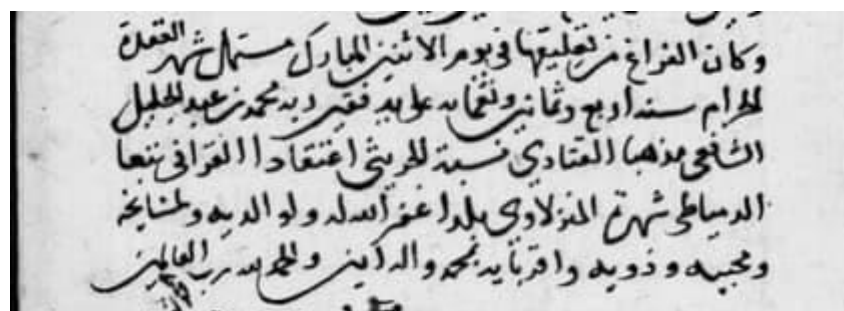 وكان الفراغ من تعليقها في يوم الاثنين المبارك مستهل شهر القعدة
الحرام سنة اربع وثمانين وتسعمايه على يد فقير ربه محمد بن عبد الجليل
الشافعي مذهبا القتادي نسبة اعتقادا
الدمياطي شهرة المنزلاوي بلدا غفر الله له ولوالديه ولمشايخه
ومحبيه وذويه واقربايه بمحمد واله امين والحمد لله رب العالمين